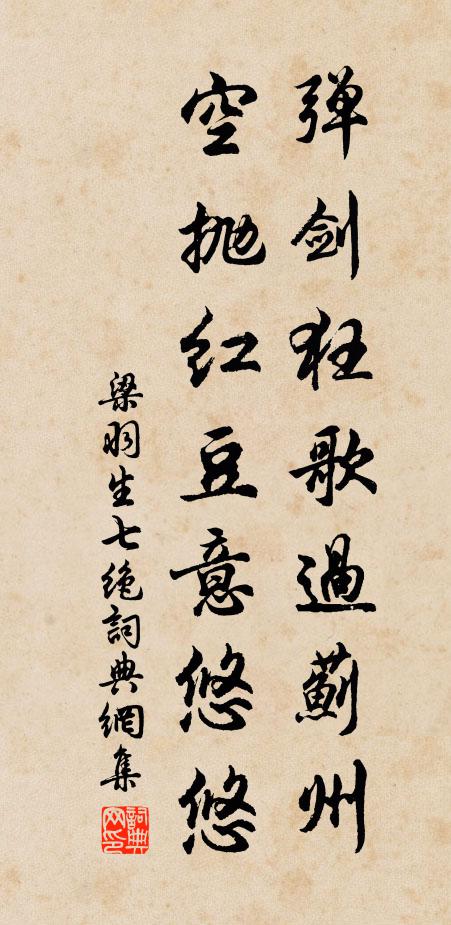 弹剑狂歌過薊州
空抛红豆意悠悠
梁羽生七绝詞典網集
詞典网印